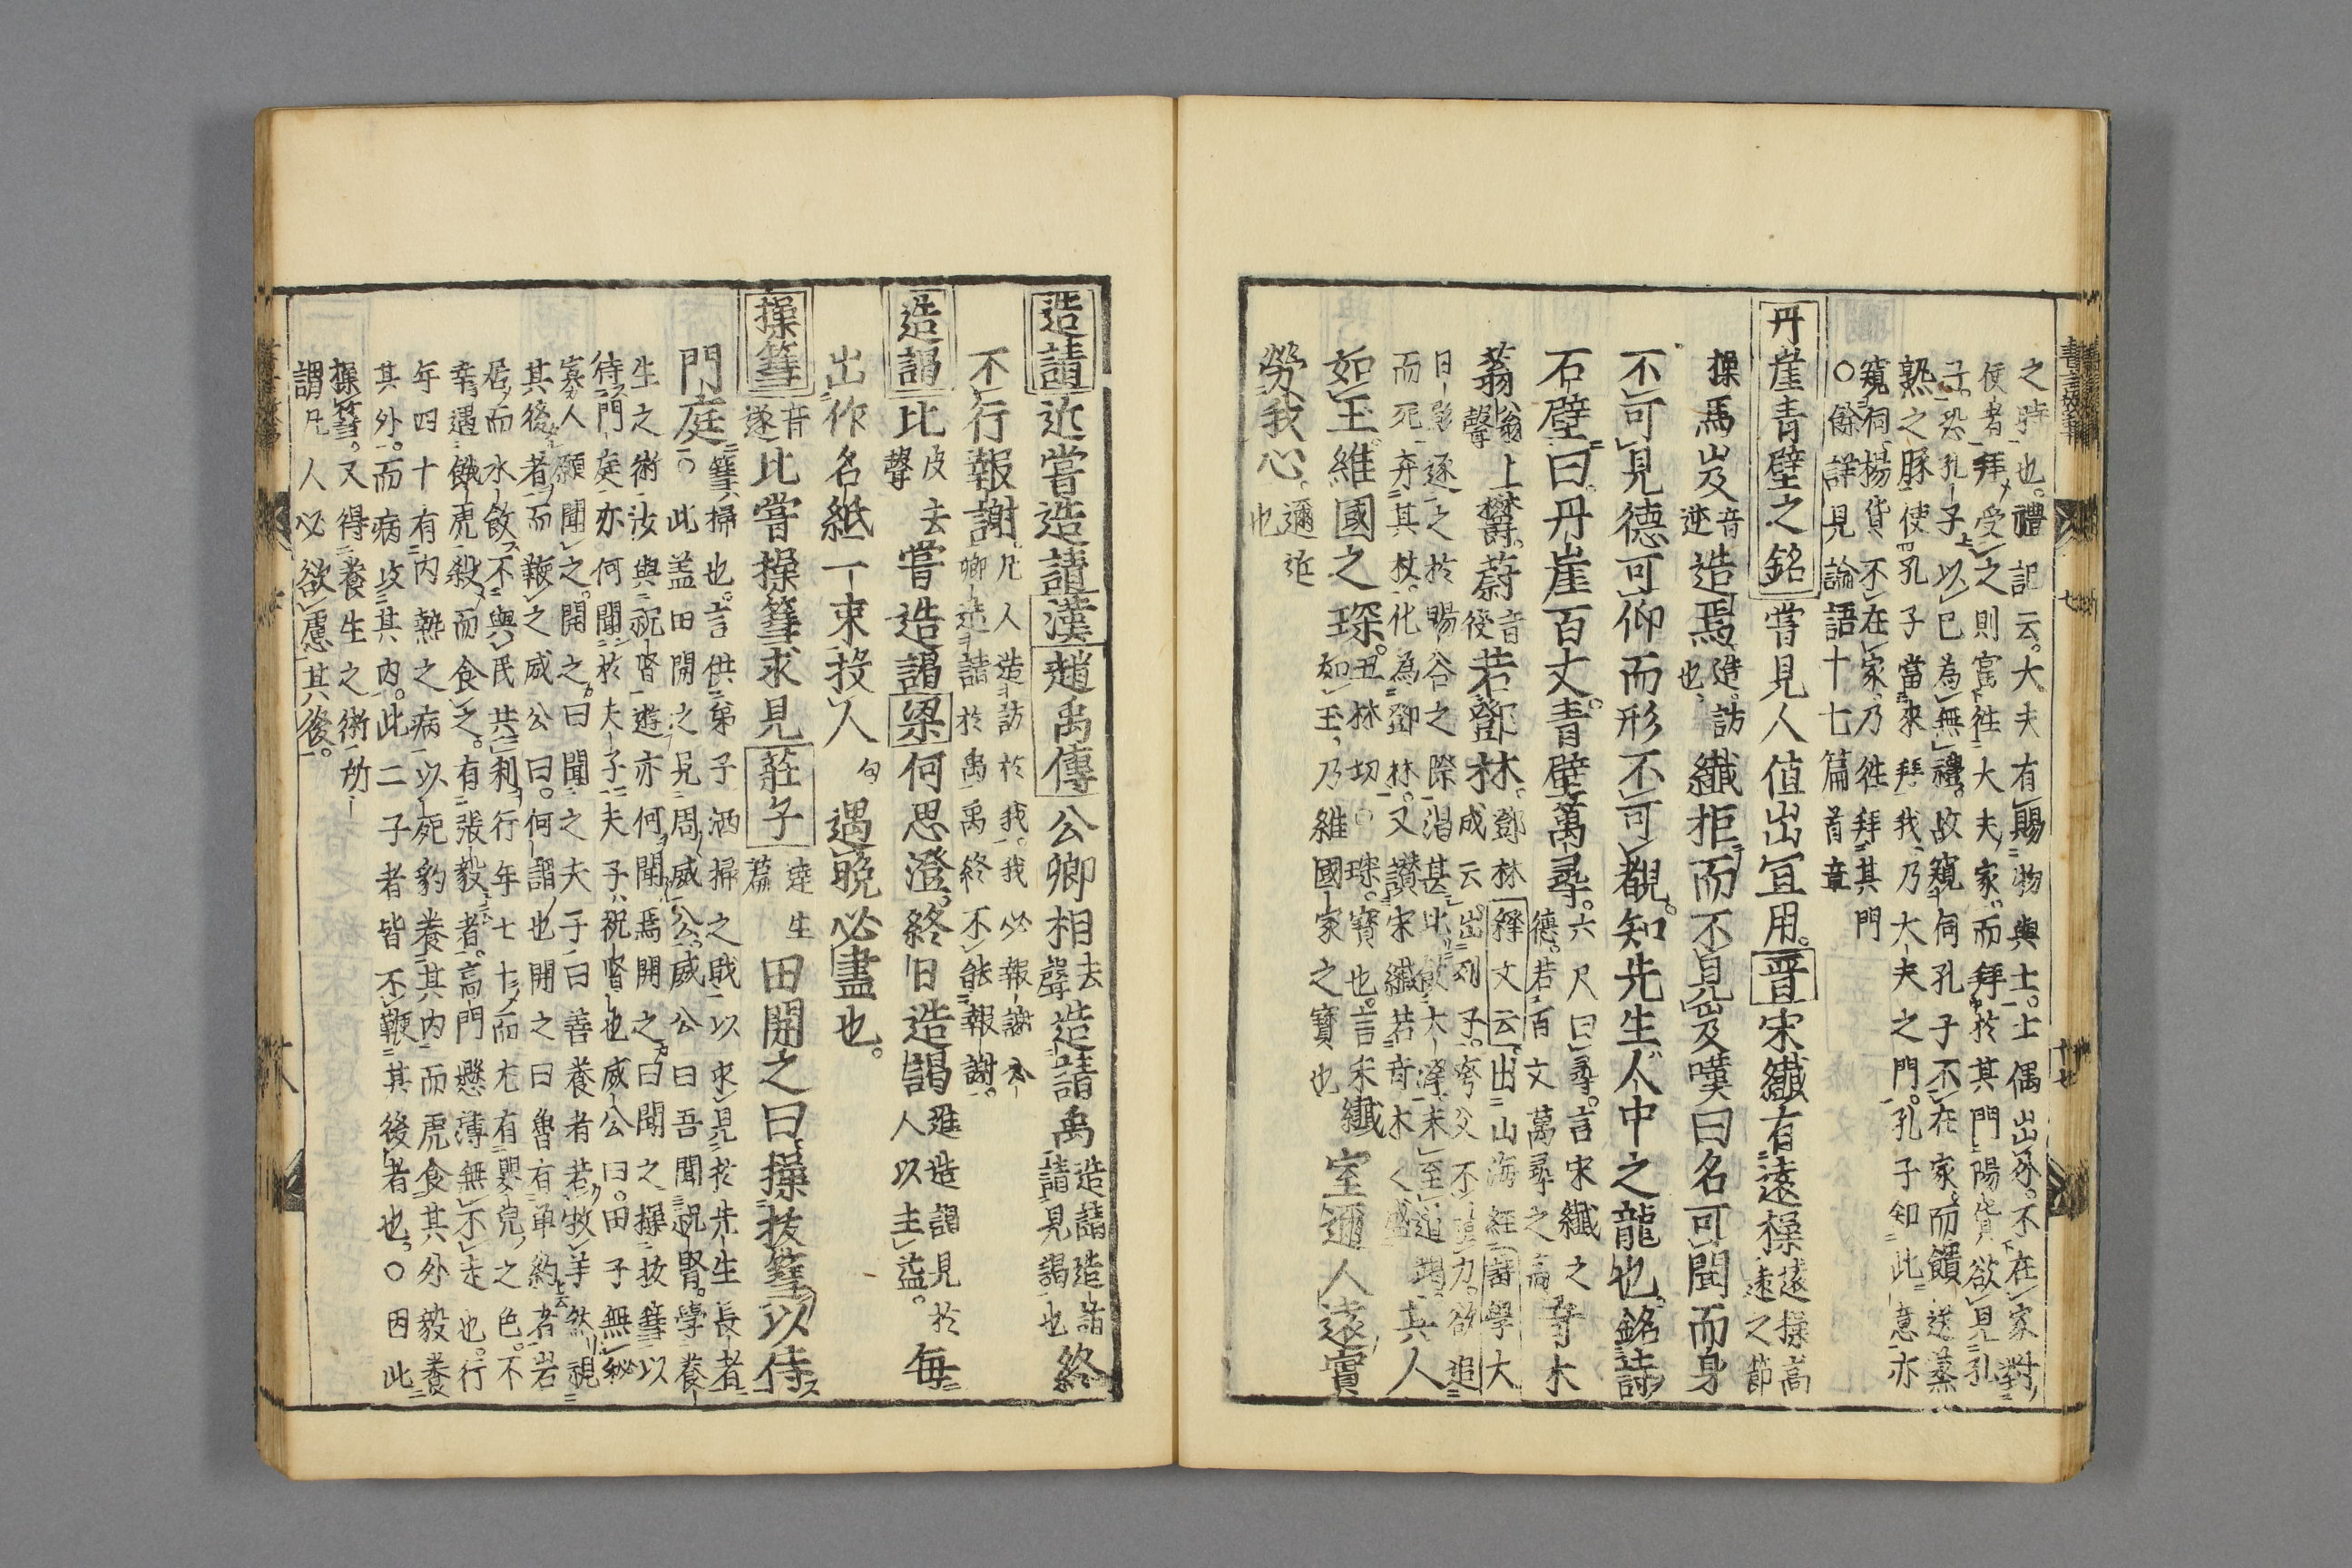 之時也。禮記云。大夫有賜物與士。士偶出外。不在家對
使者拜受之則富徃大夫家而拜於其門陽貨欲見孔
子。恐孔子以已為無禮。故窺伺孔子不在家。而饋送蒸
熟之豚使孔子當來拜我乃大夫之門。孔子知此意亦
窺伺楊貨不在家乃徃拜其門
○餘詳見論語十七篇首章
丹崖青壁之銘 嘗見人值出宜用。晋宋纖有遠操 遠操高遠之節
操馬岌 音逆 造焉 造。訪也 纖拒而不見岌嘆曰名可聞而身
不可見德可仰而形不可覩。知先生人中之龍也。銘詩
石壁曰丹崖百丈。青壁萬尋。六尺曰尋。言宋纖之德。若百丈萬尋之高 奇木
蓊 翁上聲 欝。蔚 音後 若鄧林。鄧林 釋文云 出山海經 詩學大成云 出列子。夸父不量力。欲追
日影逐之於暘谷之際渴甚 大澤未至道渴。其人
而死弃其杖。化為鄧林。又讃宋纖若奇木之盛
如玉。維國之琛。丑林切○琛。寳也。言宋纖如玉乃維國家之寶也 室邇人遠實
勞我心。邇近也
造請 近嘗造請 漢趙禹傳 公卿相 去聲 造請禹 造請造諸請見謁也 終
不行報謝。凡人造訪於我。我必報謝 公卿造請於禹禹終不能報謝。
造謁 比 皮去聲 嘗造謁 梁 何思澄。終日造謁 進造謁見於人以主益。 每
出作名紙一束投人 句 遇晚必盡也。
操篲 音遂 比嘗操篲求見 莊子 達生篇 田開之曰操拔篲以侍
門庭 篲掃也。言供弟子洒掃之戝以求見於先生長者
○此盖田開之見周威公。威公曰吾聞祝腎。學養
生之術汝與祝腎遊亦何聞焉開之曰聞之操拔篲以
待門庭亦何聞於夫子夫子祝腎也威公曰。田子無
寡人願聞之。開之曰聞之夫子曰善養者若牧羊然視
其後者而鞭之威公曰。何謂也開之曰魯有單約者岩
居而水飲不與民共利行年七十而尤有嬰兒之色。不
幸遇餓虎殺而食之。有張毅者。高門懸薄無不走也。行
年四十有内熱之病以死豹養其内而虎食其外毅養
其外。而病攻其内。此二子者皆不鞭其後者也。○因此
操篲。又得養生之術所
謂凡人必欲慮其後。